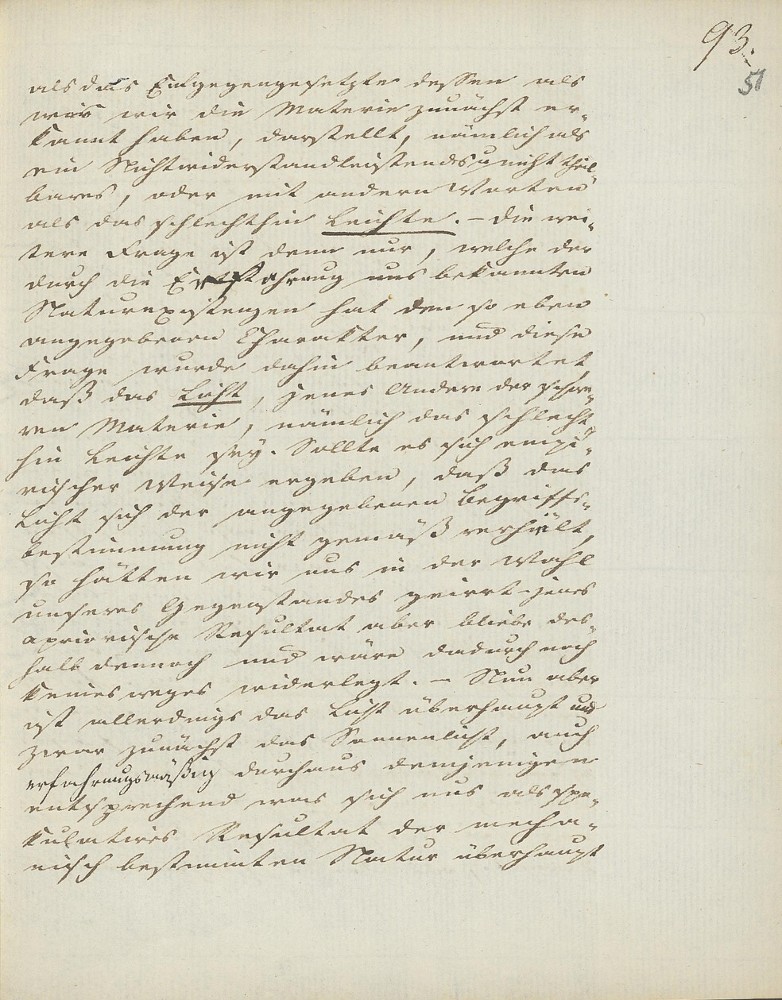 93.
51
als das Entgegengesetzte dessen als
was wir die Materie zunächst er-
kannt haben, darstellt, nämlich als
ein Nichtwiderstandleistendes u nicht theil-
bares, oder mit andern Worten
als das schlechthin Leichte. – Die wei-
tere Frage ist denn nur, welche der
durch die Erfahrung uns bekannten
Naturexistenzen hat den so eben
angegebenen Charakter, und diese
Frage wurde dahin beantwortet
daß das Licht, jenes Andere der schwe-
ren Materie, nämlich das schlecht-
hin Leichte sey. Sollte es sich empi-
rischer Weise ergeben, daß das
Licht sich der angegebenen Begriffs-
bestimmung nicht gemäß verhält,
so hätten wir uns in der Wahl
unseres Gegenstandes geirrt – jenes
apriorische Resultat aber bliebe des-
halb dennoch und wäre dadurch noch
keinesweges widerlegt. – Nun aber
ist allerdings das Licht überhaupt und
zwar zunächst das Sonnenlicht, auch
erfahrungsmäßig durchaus demjenigen
entsprechend was sich uns als spe-
kulatives Resultat der mecha-
nisch bestimmten Natur überhaupt